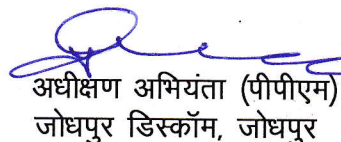 अधीक्षण अभियंता (पीपीएम)
जोधपुर डिस्कॉम, जोधपुर